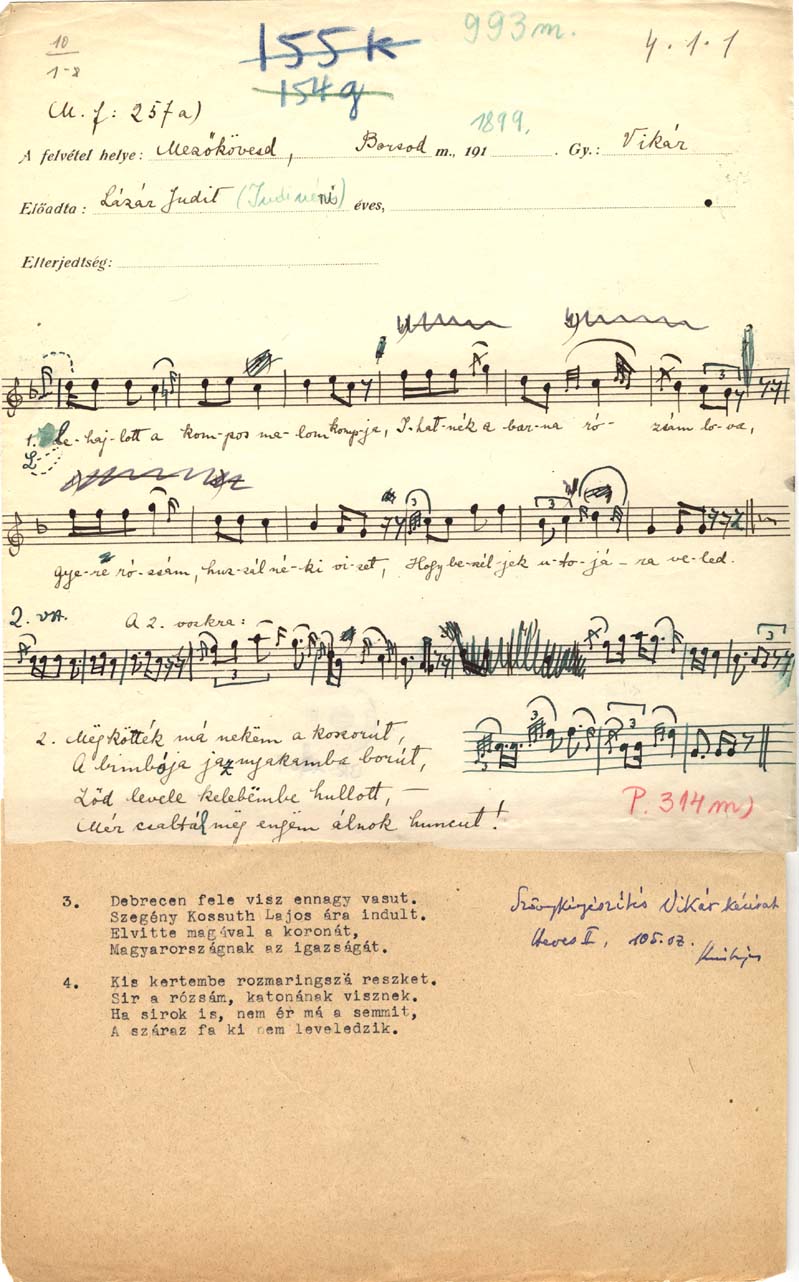 10
1-8
155k
154g
993m.
4.1.1
M. f: 257a)
A felvétel helye: Mezőkövesd, Borsod m., 191 1899. Gy.: Vikár
Előadta: Lázár Judit (Judi néni) éves,
Elterjedtség:
1. Le-haj-lott a kom-pos ma-lom komp-ja, I-hat-nék a bar-na ró- zsám lo-va,
Gye-re ró-zsám, huz-zál né-ki vi-zet, Hogy be-zél-jek u-to-já-ra ve-led.
2. va.
A 2. vszakra:
2. Mëgkötték má nekëm a koszorút,
A bimbója ja nyakamba borút,
Zöd levele kelebëmbe hullott, —
Mér csaltál mëg engëm álnok huncut!
P. 314m)
3. Debrecen fele visz ennagy vasut.
Szegény Kossuth Lajos ára indult.
Elvitte magával a koronát,
Magyarországnak az igazságát.
Szövegkiegészítés Vikár kézirat
Heves II, 105.oz.
4. Kis kertembe rozmaringszá reszket.
Sir a rózsám, katonának visznek.
Ha sirok is, nem ér má a semmit,
A száraz fa ki nem leveledzik.